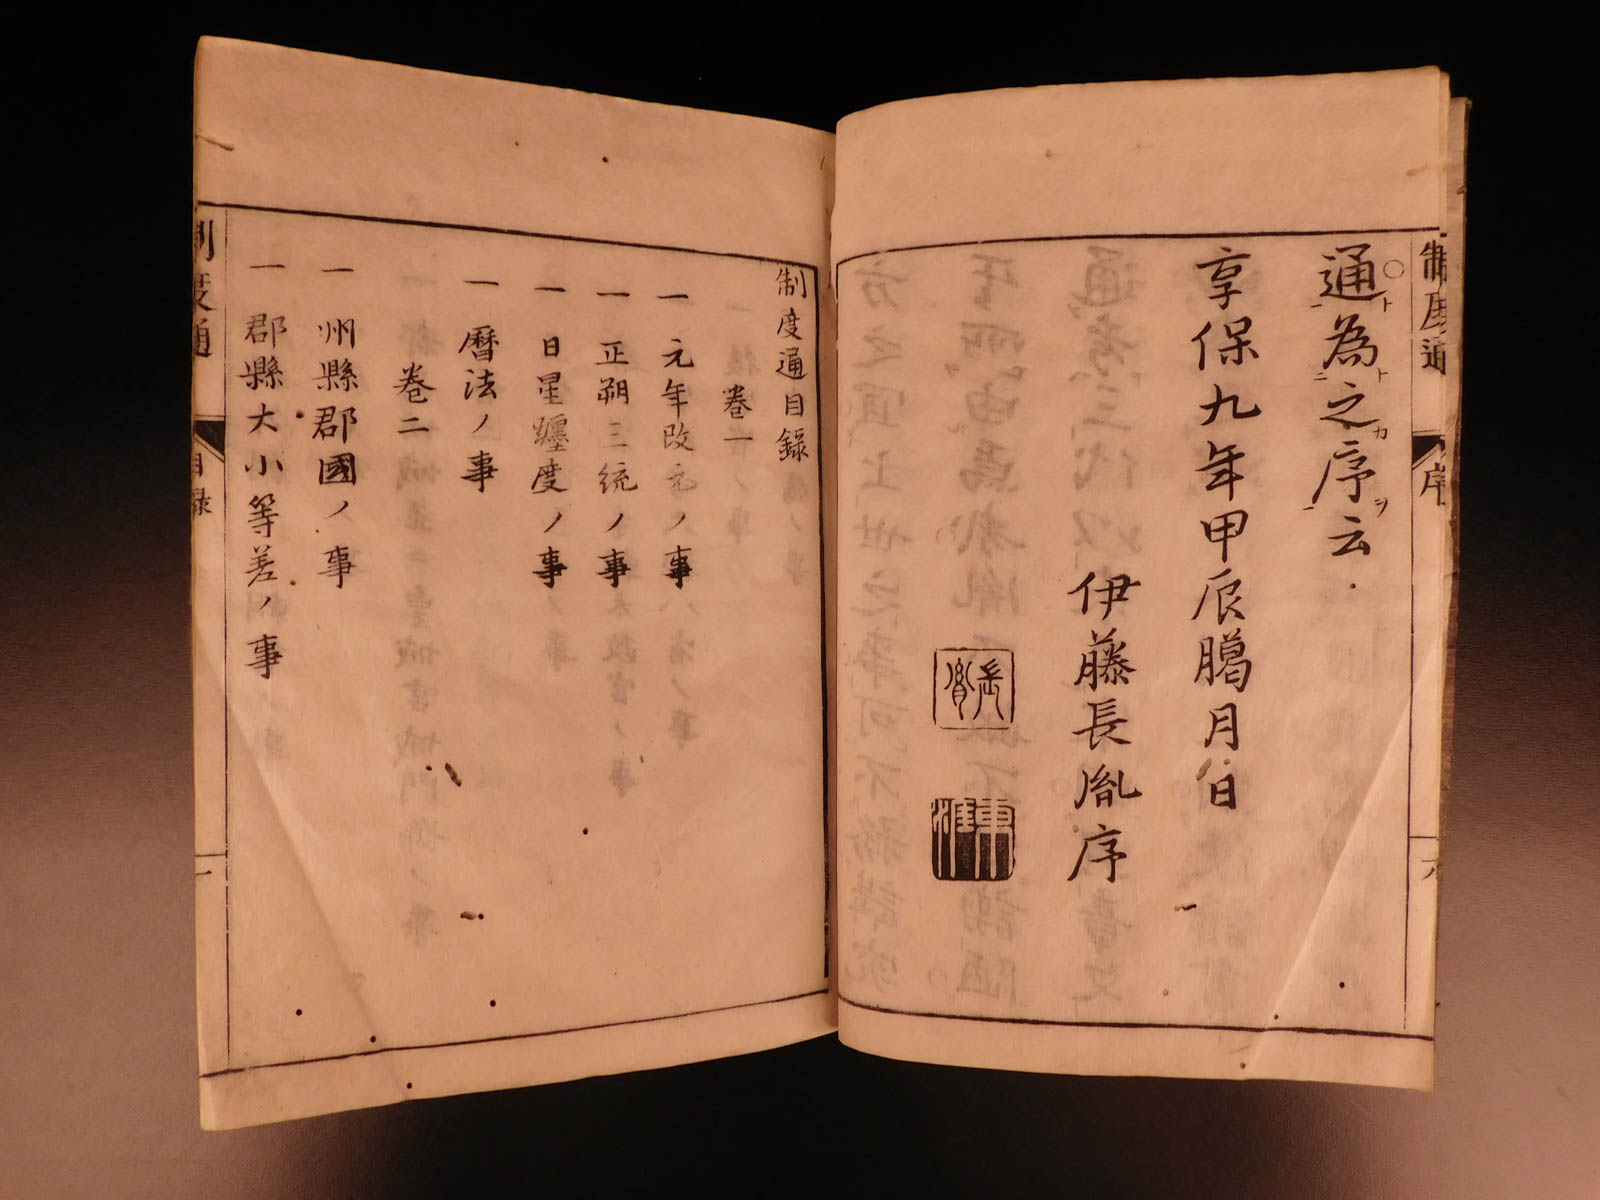 制度通
序
通為之序云
享保九年甲辰臈月日
伊藤長胤序
長胤
東涯
制度通目録
巻一
一 元年改元ノ事
一 正朔三統ノ事
一 日星躔度ノ事
一 暦法ノ事
巻二
一 州縣郡國ノ事
一 郡縣大小等差ノ事
制度通
目録
一